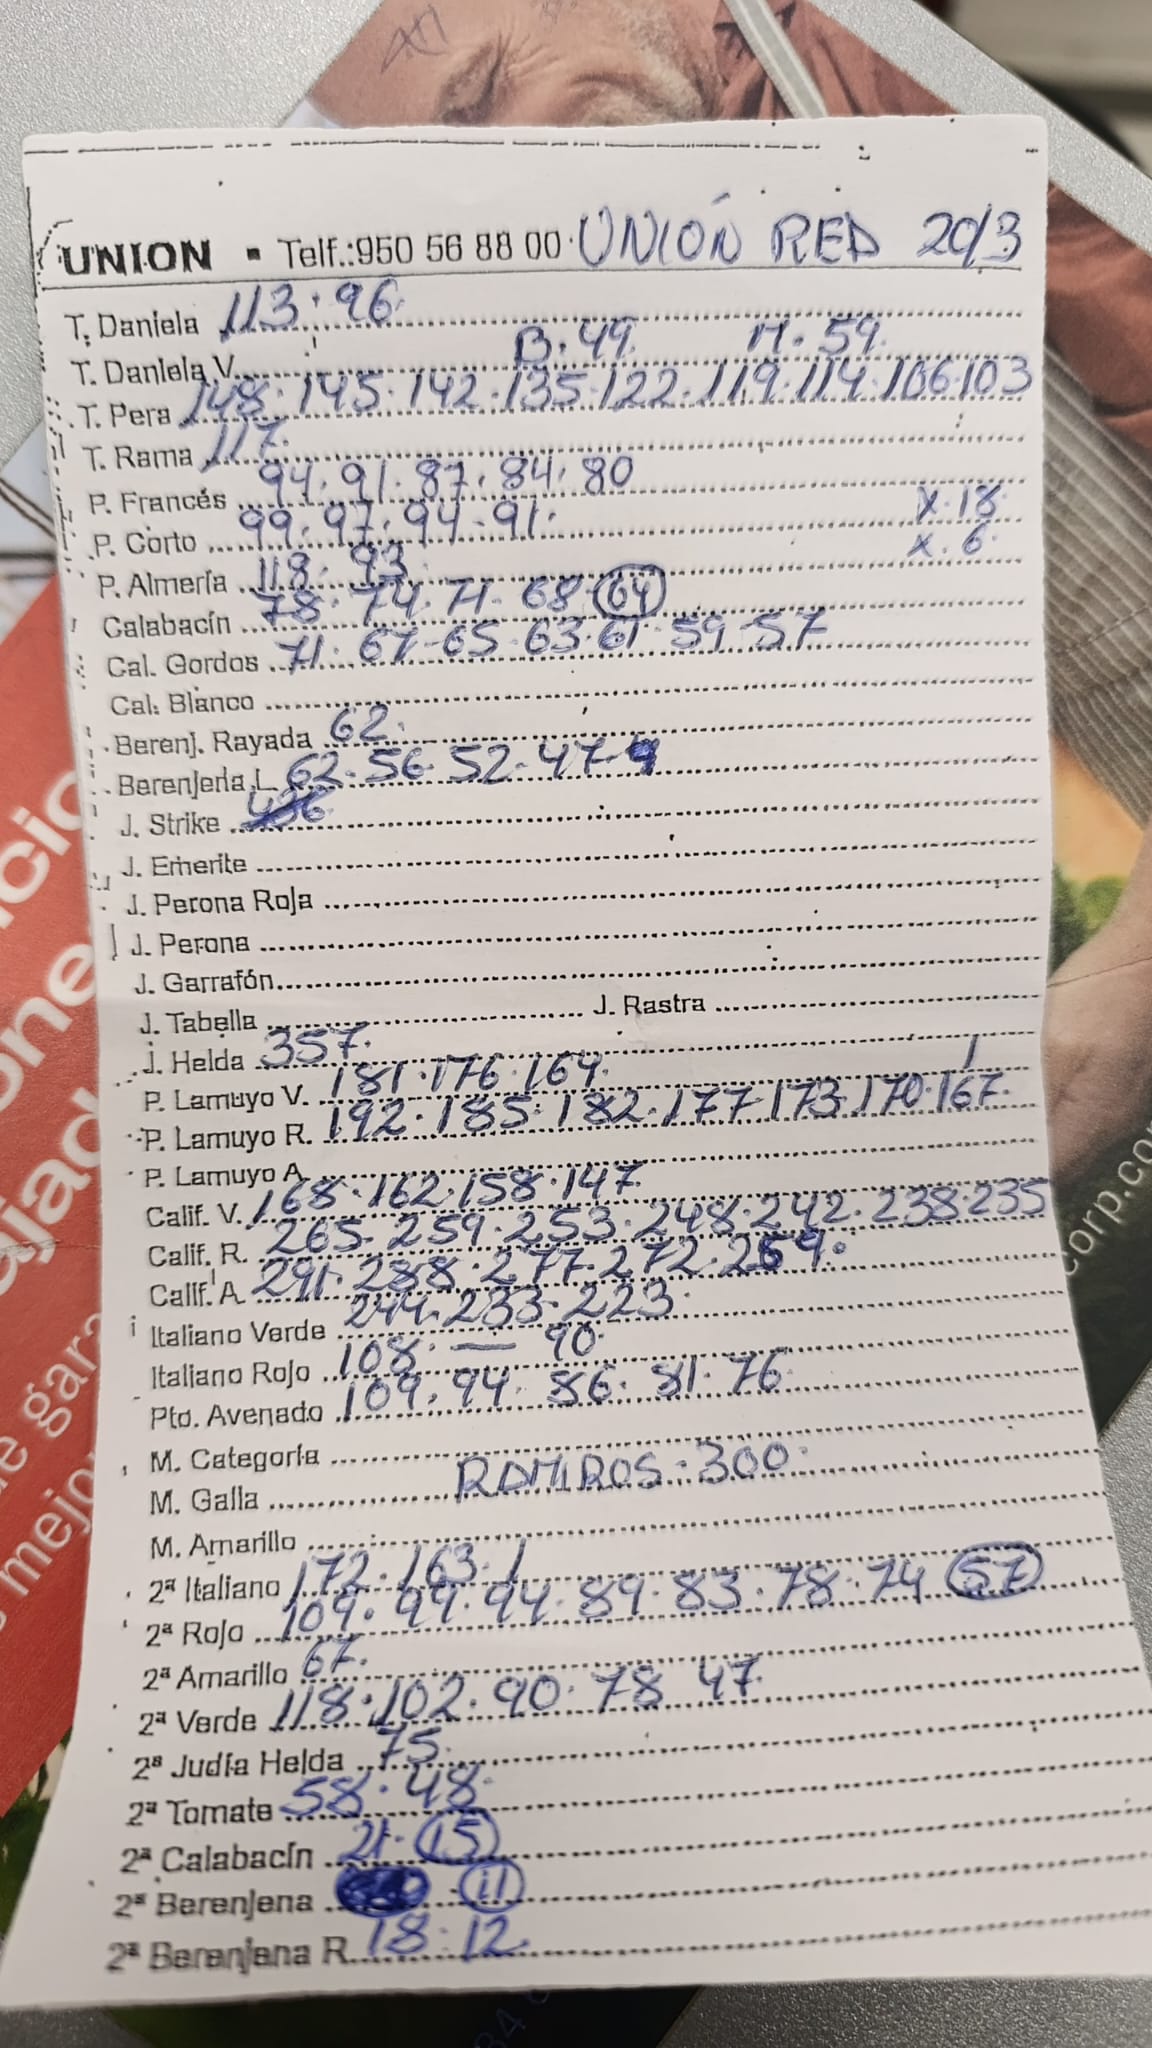 UNION - Telf.:950 56 88 00 UNIÓN RED 20/3
T. Daniela 113. 96.
T. Daniela V. B. 49. M. 59.
T. Pera 148. 145. 142. 135. 122. 119. 114. 106. 103
T. Rama 117.
P. Francés 94. 91. 87. 84. 80
P. Corto 99. 97. 94. 91. X. 18
P. Almería 118. 93. X. 6.
Calabacín 78. 74. 71. 68. 64
Cal. Gordos 71. 67. 65. 63. 61. 59. 57
Cal. Blanco
Berenj. Rayada 62.
Berenjena L. 62. 56. 52. 47.
J. Strike
J. Emerite
J. Perona Roja
J. Perona
J. Garrafón
J. Tabella J. Rastra
J. Helda 357.
P. Lamuyo V. 181. 176. 164.
P. Lamuyo R. 192. 185. 182. 177. 173. 170. 167.
P. Lamuyo A.
Calif. V. 168. 162. 158. 147.
Calif. R. 265. 259. 253. 248. 242. 238. 235
Calif. A. 291. 288. 277. 272. 269.
Italiano Verde 244. 233. 223.
Italiano Rojo 108. — 90.
Pto. Avenado 109. 94. 86. 81. 76.
M. Categoría
M. Galia RAMIROS. 300.
M. Amarillo
2ª Italiano 172. 163. 1
2ª Rojo 109. 99. 94. 89. 83. 78. 74 57
2ª Amarillo 67.
2ª Verde 118. 102. 90. 78 47.
2ª Judía Helda 75.
2ª Tomate 58. 48.
2ª Calabacín 21. 15
2ª Berenjena 11
2ª Berenjena R. 18. 12.